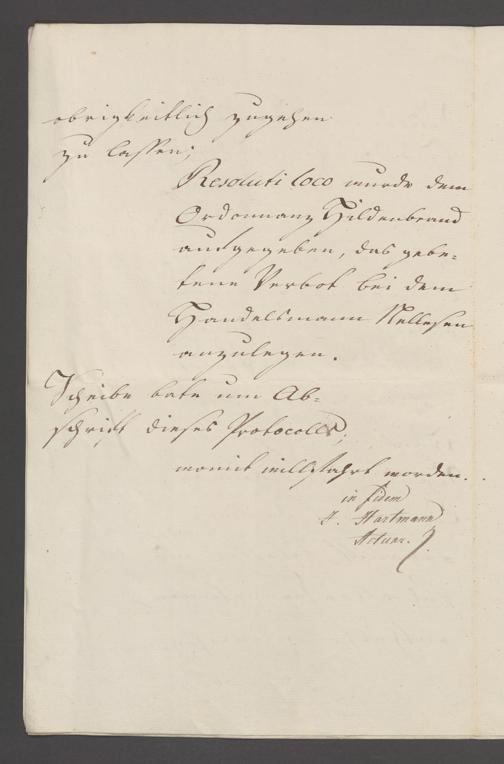 obrigkeitlich zugehen
zu lassen;
Resoluti loco wurde dem
Ordonnanz Hildenbrand
aufgegeben, das gebe-
tene Verbot bei dem
Handelsmann Nellesen
anzulegen.
Scheibe bate um Ab-
schrift dieses Protocolls;
womit willfahrt worden.
in fidem
J. Hartmann
Actuar.